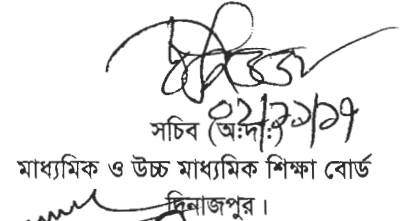 সচিব (অঃদাঃ)
মাধ্যমিক ও উচ্চ মাধ্যমিক শিক্ষা বোর্ড
দিনাজপুর।